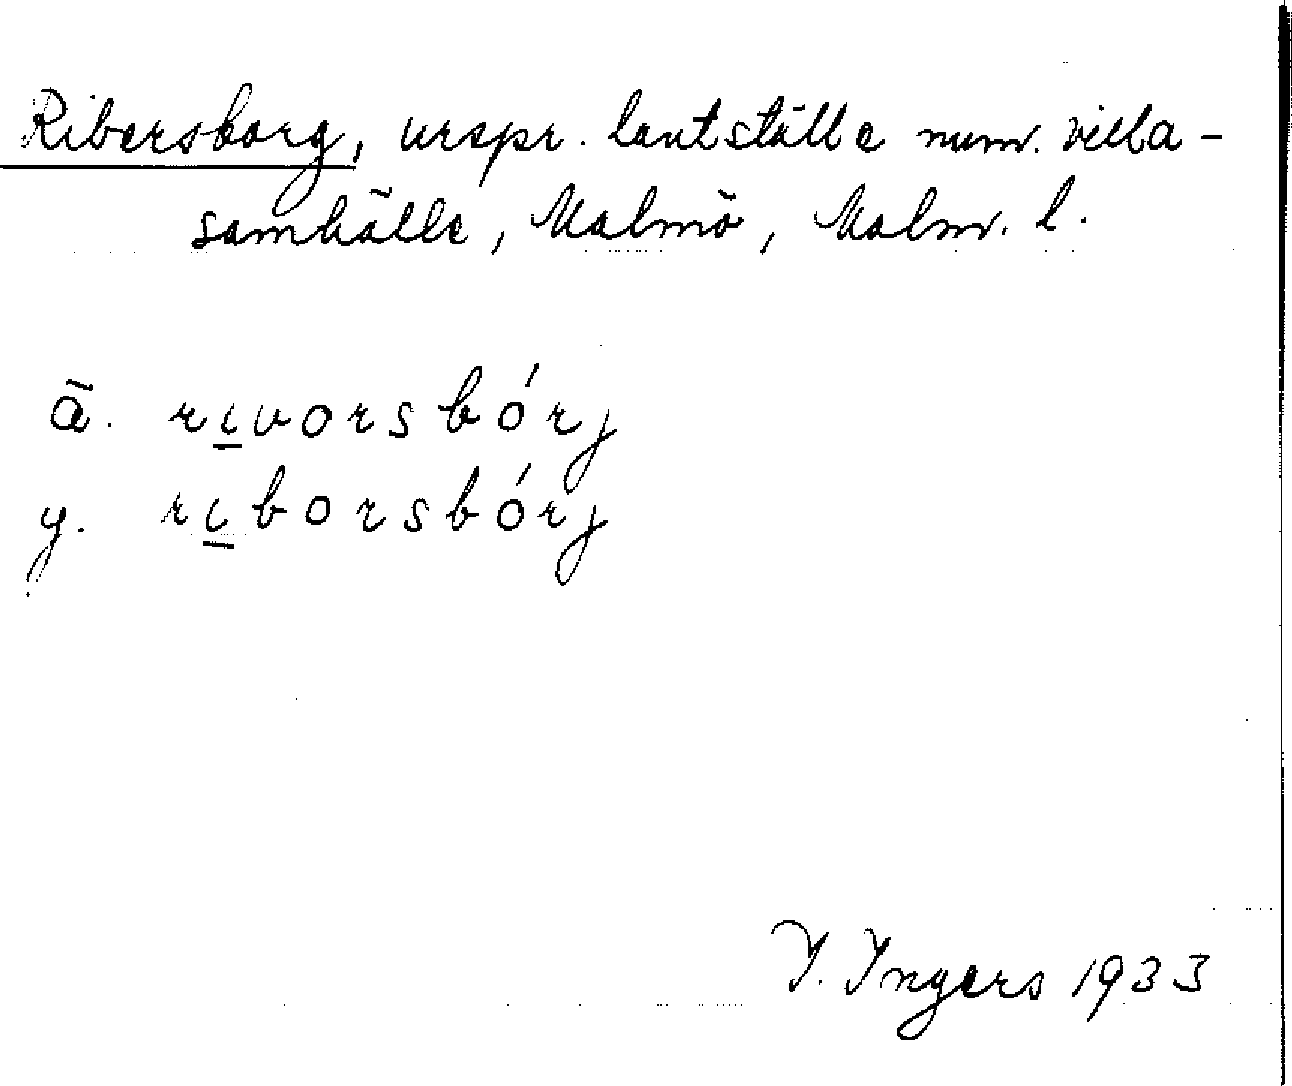 Ribersborg, urspr. lantställe numr. villa-
samhälle, Malmö, Malm. l.
ä. rivorsbórj
y. riborsbórj
I. Ingers 1933